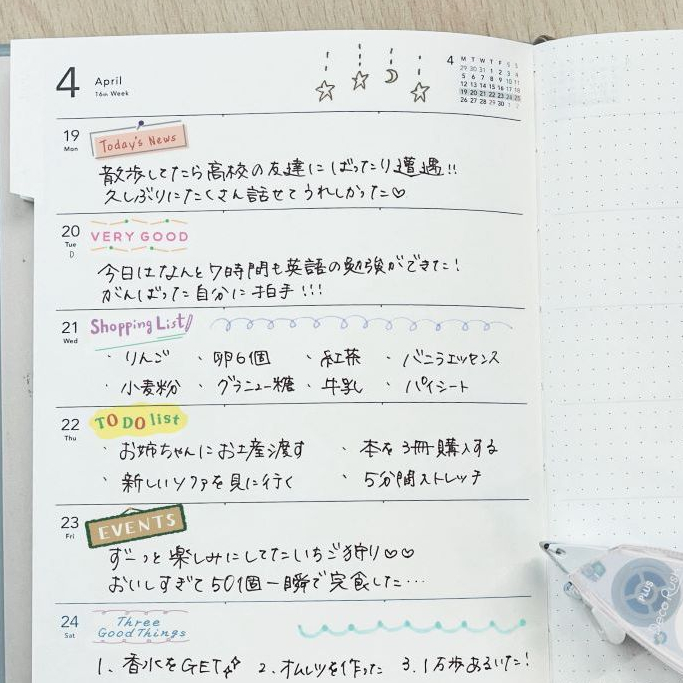 4 April
16th Week
4 M T W T F S S
29 30 31 1 2 3 4
5 6 7 8 9 10 11
12 13 14 15 16 17 18
19 20 21 22 23 24 25
26 27 28 29 30 1 2
19 Mon Today's News
散歩してたら高校の友達にばったり遭遇!!
久しぶりにたくさん話せてうれしかった♡
20 Tue VERY GOOD
今日はなんと7時間も英語の勉強ができた!
がんばった自分に拍手!!!
21 Wed Shopping List
・りんご ・卵6個 ・紅茶 ・バニラエッセンス
・小麦粉 ・グラニュー糖 ・牛乳 ・パイシート
22 Thu TO DO list
・お姉ちゃんにお土産渡す ・本を3冊購入する
・新しいソファを見に行く ・5分間ストレッチ
23 Fri EVENTS
ずーっと楽しみにしてたいちご狩り♡♡
おいしすぎて50個一瞬で完食した…
24 Sat Three
Good Things
1. 香水をGET 2. オムレツを作った 3. 1万歩あるいた!
PLUS
Deco Rush